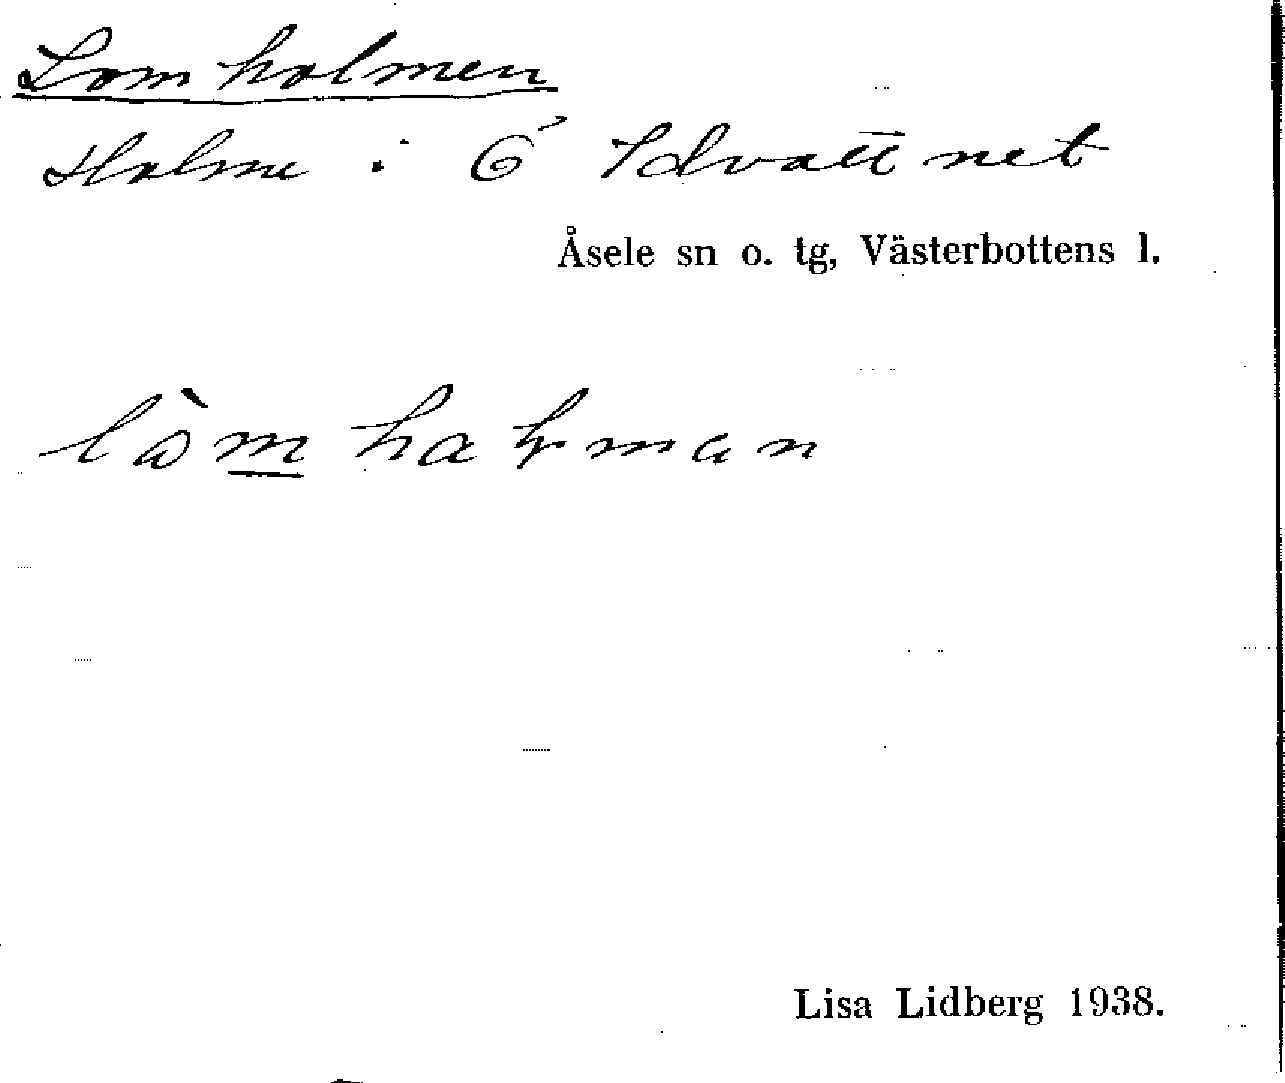 Lomholmen
Holme i Ö Idvattnet
Åsele sn o. tg, Västerbottens l.
Lisa Lidberg 1938.